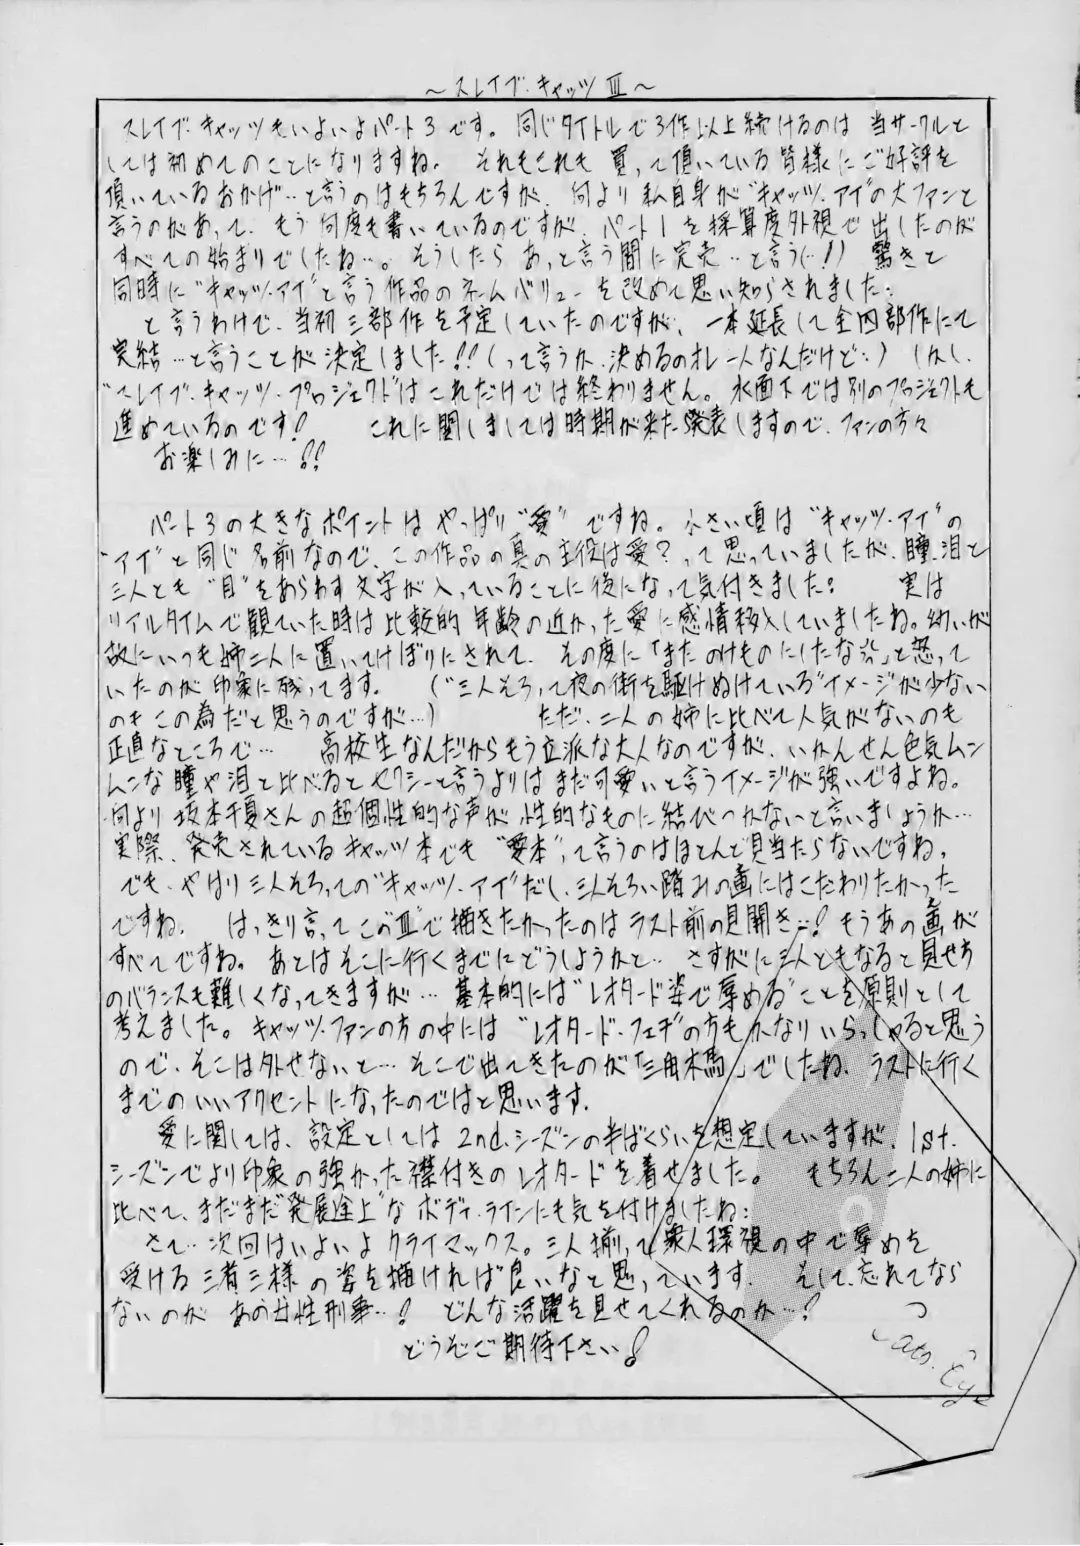 ～スレイブ・キャッツⅢ～
スレイブ・キャッツもいよいよパート3です。同じタイトルで3作以上続けるのは当サークルと
しては初めてのことになりますね。それもこれも買って頂いている皆様にご好評を
頂いているおかげ…と言うのはもちろんですが、何より私自身が“キャッツ・アイ”の大ファンと
言うのがあって、もう何度も書いているのですが、パート1を採算度外視で出したのが
すべての始まりでしたね…。そうしたらあっと言う間に完売…と言う(…!!) 驚きと
同時に“キャッツ・アイ”と言う作品のネームバリューを改めて思い知らされました:
と言うわけで、当初三部作を予定していたのですが、一本延長して全四部作にて
完結…と言うことが決定しました!!(って言うか、決めるのオレ一人なんだけど…) しかし、
“スレイブ・キャッツ・プロジェクト”はこれだけでは終わりません。水面下では別のプロジェクトも
進めているのです! これに関しましては時期が来たら発表しますので、ファンの方々
お楽しみに…!!
パート3の大きなポイントはやっぱり“愛”ですね。小さい頃は“キャッツ・アイ”の
“アイ”と同じ名前なので、この作品の真の主役は愛?って思っていましたが、瞳、泪と
三人とも“目”をあらわす文字が入っていることに後になって気付きました: 実は
リアルタイムで観ていた時は比較的年齢の近かった愛に感情移入していましたね。幼いが
故にいつも姉二人に置いてけぼりにされて、その度に「またのけものにしたな」と怒って
いたのが印象に残ってます。(“三人そろって夜の街を駆けぬけている”イメージが少ない
のもこの為だと思うのですが…) ただ、二人の姉に比べて人気がないのも
正直なところで… 高校生なんだからもう立派な大人なのですが、いかんせん色気ムン
ムンな瞳や泪と比べるとセクシーと言うよりはまだ可愛いと言うイメージが強いですよね。
何より坂本千夏さんの超個性的な声が性的なものに結びつかないと言いましょうか…
実際、発売されているキャッツ本でも“愛本”って言うのはほとんど見当たらないですね。
でも、やはり三人そろっての“キャッツ・アイ”だし、三人そろい踏みの画にはこだわりたかった
ですね。はっきり言ってこの“Ⅲ”で描きたかったのはラスト前の見開き…! もうあの画が
すべてですね。あとはそこに行くまでにどうしようかと… さすがに三人ともなると見せ方
のバランスも難しくなってきますが… 基本的には“レオタード姿で辱める”ことを原則として
考えました。キャッツ・ファンの方の中には“レオタード・フェチ”の方もかなりいらっしゃると思う
ので、そこは外せないと… そこで出てきたのが「三角木馬」でしたね、ラストに行く
までのいいアクセントになったのではと思います。
愛に関しては、設定としては2nd.シーズンの半ばくらいを想定していますが、1st.
シーズンでより印象の強かった襟付きのレオタードを着せました。もちろん二人の姉に
比べて、まだまだ“発展途上”なボディ・ラインにも気を付けましたね:
さて…次回はいよいよクライマックス。三人揃って衆人環視の中で辱めを
受ける三者三様の姿を描ければ良いなと思っています。そして、忘れてなら
ないのがあの女性刑事…! どんな活躍を見せてくれるのか…?
どうぞご期待下さい!
Cat's Eye